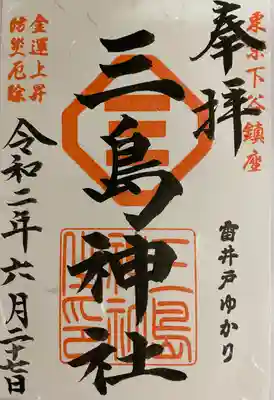 東京下谷鎮座
奉拝
雷井戸ゆかり
三島神社
金運上昇
防災厄除
令和二年六月二十七日